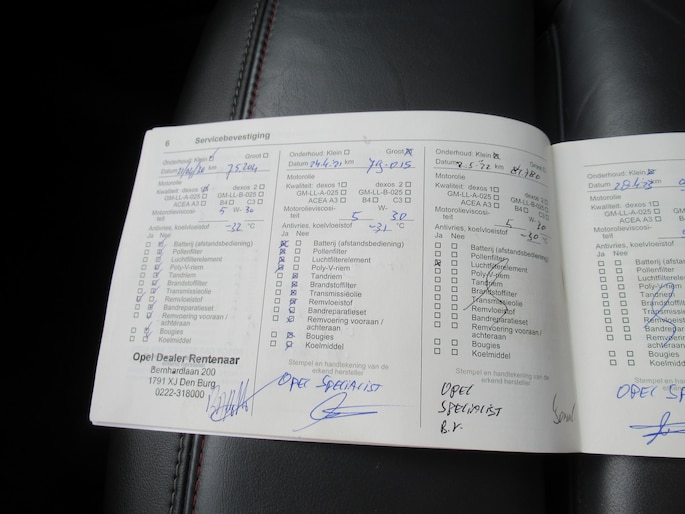 6 Servicebevestiging
Onderhoud: Klein Groot
Datum km 75204
Motorolie
Kwaliteit: dexos 1 dexos 2
GM-LL-A-025 GM-LL-B-025
ACEA A3 B4 C3
Motorolieviscosi- W-
teit 5 30
Antivries, koelvloeistof -32 °C
Ja Nee
Batterij (afstandsbediening)
Pollenfilter
Luchtfilterelement
Poly-V-riem
Tandriem
Brandstoffilter
Transmissieolie
Remvloeistof
Bandreparatieset
Remvoering vooraan /
achteraan
Bougies
Koelmiddel
Opel Dealer Rentenaar
Bernhardlaan 200
1791 XJ Den Burg
0222-318000
Onderhoud: Klein Groot
Datum 24.4.21 km 79-015
Motorolie
Kwaliteit: dexos 1 dexos 2
GM-LL-A-025 GM-LL-B-025
ACEA A3 B4 C3
Motorolieviscosi- W-
teit 5 30
Antivries, koelvloeistof -31 °C
Ja Nee
Batterij (afstandsbediening)
Pollenfilter
Luchtfilterelement
Poly-V-riem
Tandriem
Brandstoffilter
Transmissieolie
Remvloeistof
Bandreparatieset
Remvoering vooraan /
achteraan
Bougies
Koelmiddel
Stempel en handtekening van de
erkend hersteller
OPEL SPECIALIST
Onderhoud: Klein Groot
Datum km
Motorolie
Kwaliteit: dexos 1 dexos 2
GM-LL-A-025 GM-LL-B-025
ACEA A3 B4 C3
Motorolieviscosi- W-
teit 5 30
Antivries, koelvloeistof -30 °C
Ja Nee
Batterij (afstandsbediening)
Pollenfilter
Luchtfilterelement
Poly-V-riem
Tandriem
Brandstoffilter
Transmissieolie
Remvloeistof
Bandreparatieset
Remvoering vooraan /
achteraan
Bougies
Koelmiddel
Stempel en handtekening van de
erkend hersteller
OPEL
SPECIALIST
B.V.
Onderhoud: Klein
Datum 28.4.23 km
Motorolie
Kwaliteit: dexos 1
GM-LL-A-025
ACEA A3
Motorolieviscosi-
teit
Antivries, koelvloeistof
Ja Nee
Batterij (afst
Pollenfilter
Luchtfilter
Poly-V-rie
Tandriem
Brandstof
Transmis
Remvloei
Bandrepa
Remvoeri
achteraan
Bougies
Koelmidd
Stempel en hand
erkend
OPEL SP